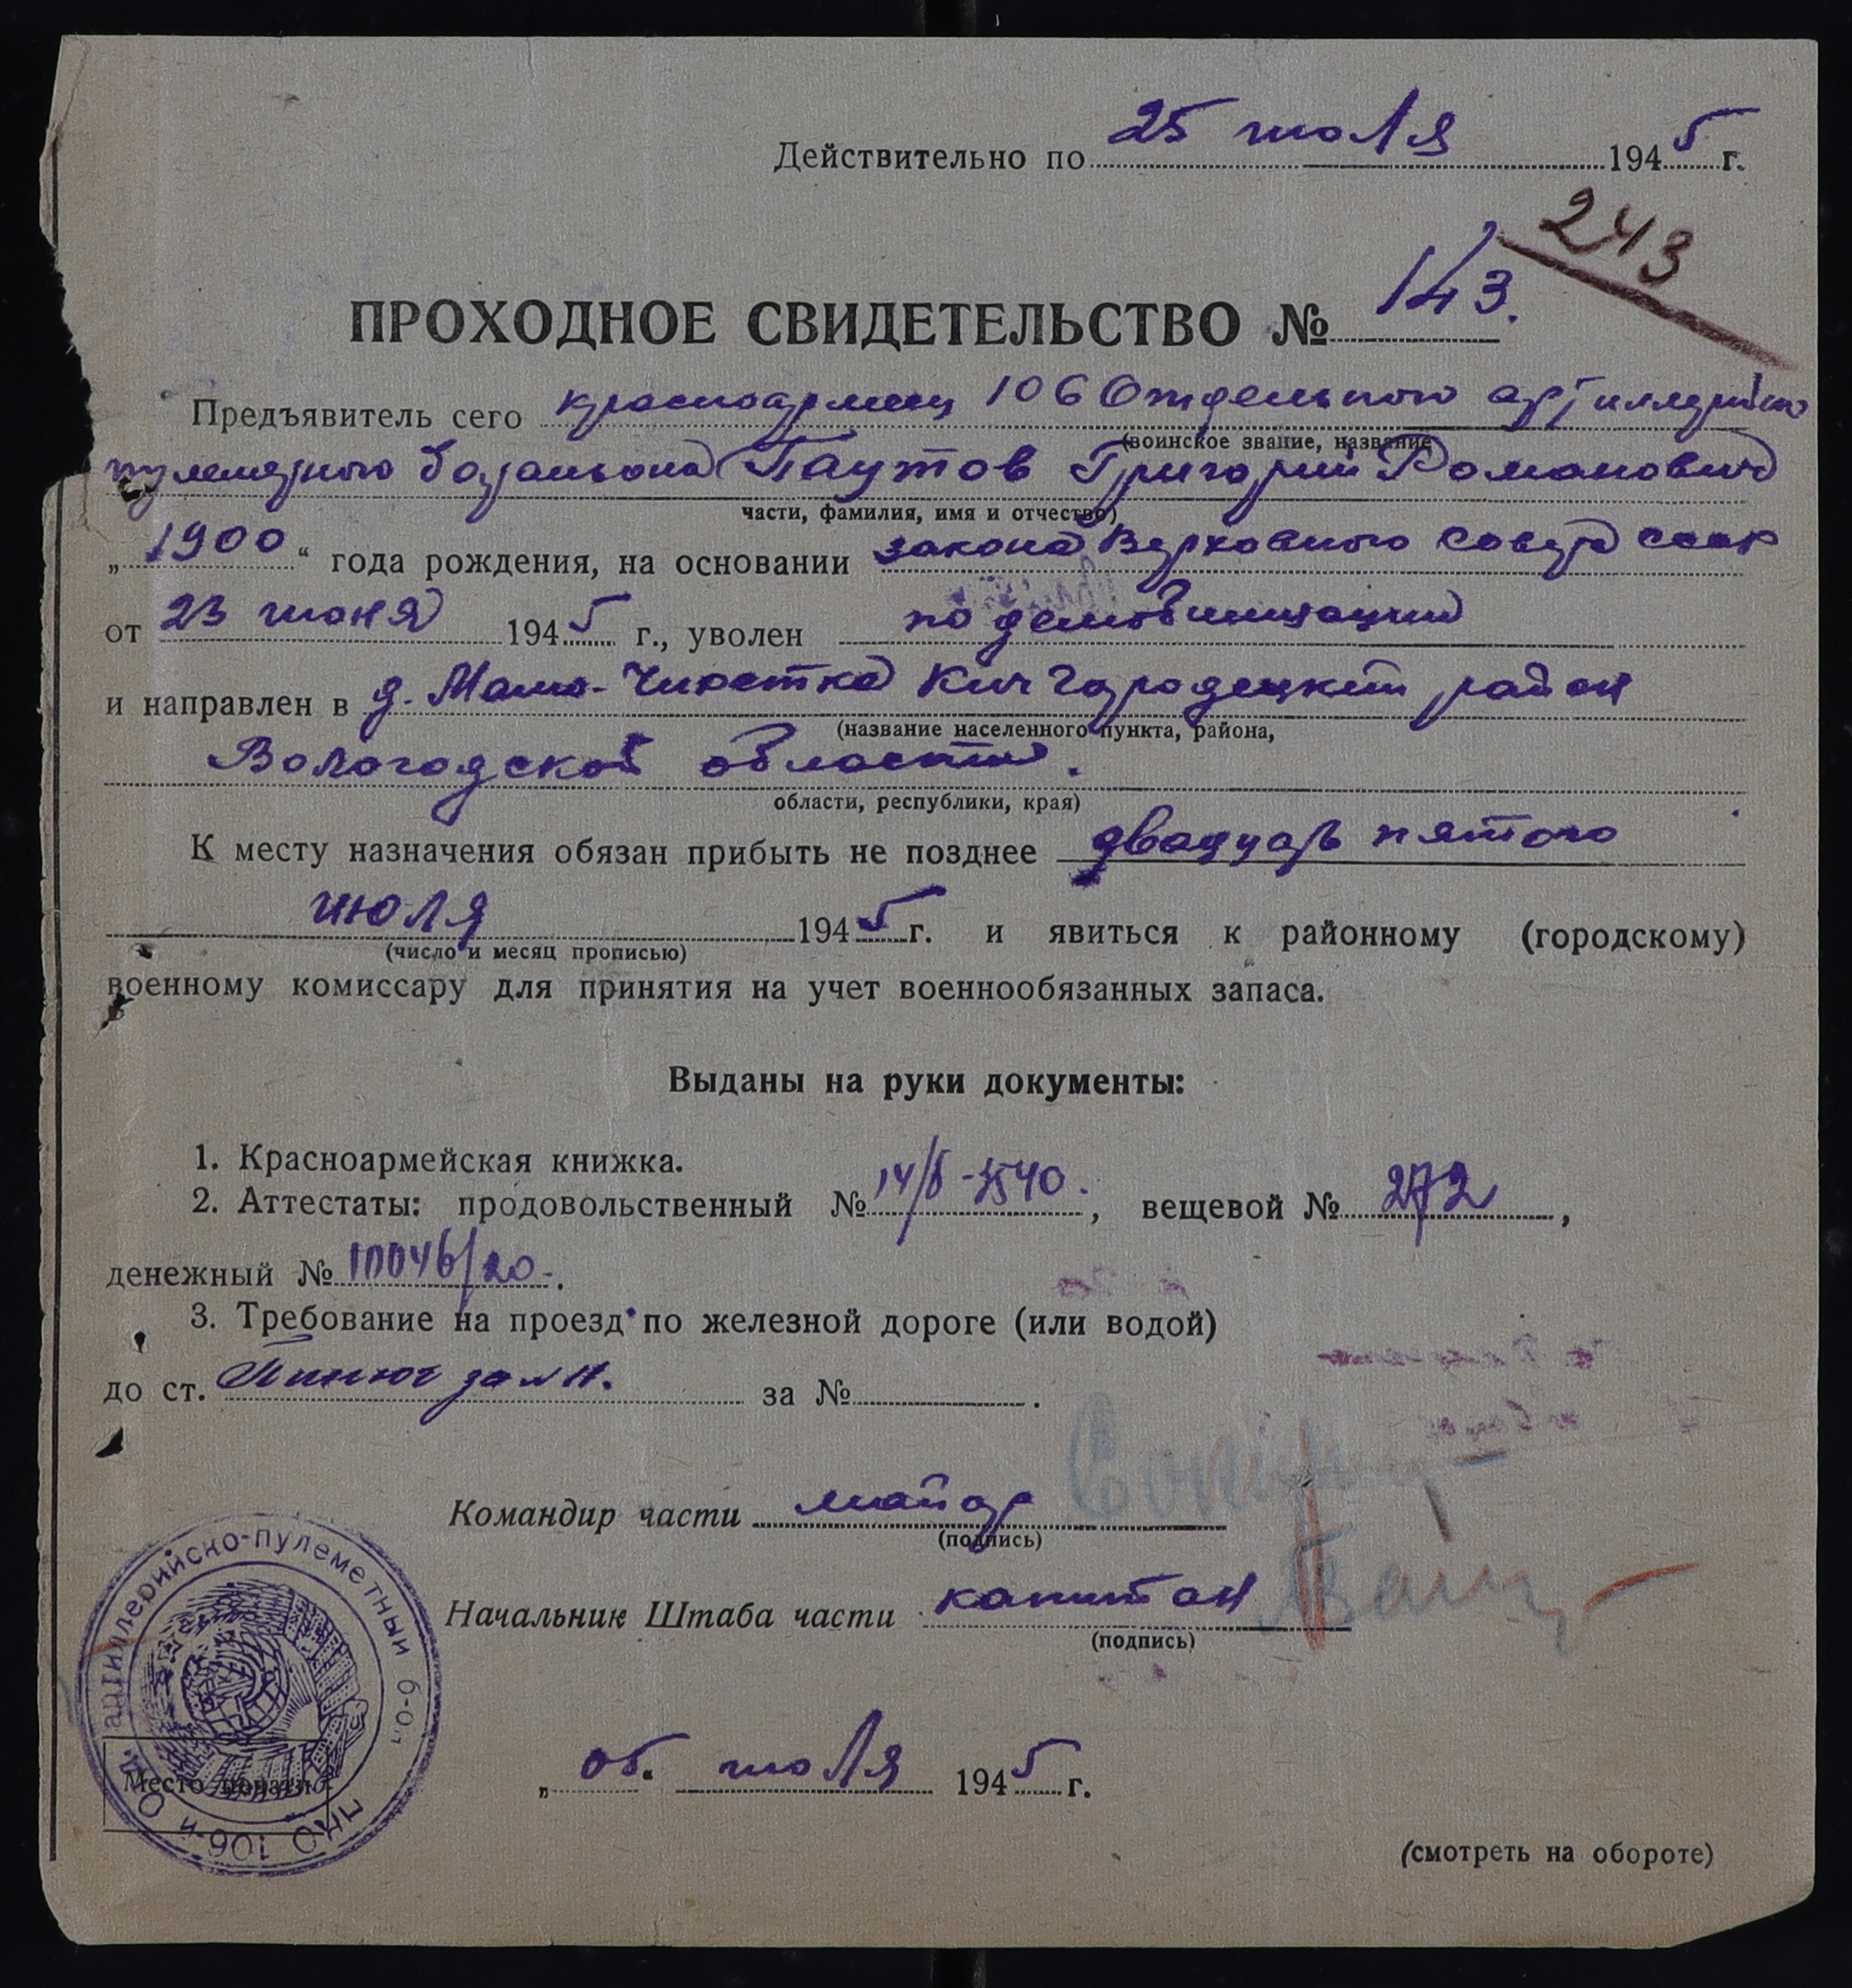 Действительно по 25 июля 1945 г.
243
ПРОХОДНОЕ СВИДЕТЕЛЬСТВО № 143.
Предъявитель сего красноармеец 106 Отдельного артиллерийско
(воинское звание, название
пулеметного батальона Паутов Григорий Романович
части, фамилия, имя и отчество)
„1900“ года рождения, на основании закона Верховного Совета СССР
от 23 июня 1945 г., уволен по демобилизации
и направлен в д. Мало-Чирятка Кичгородецкий район
(название населенного пункта, района,
Вологодской области.
области, республики, края)
К месту назначения обязан прибыть не позднее двадцать пятого
июля 1945 г. и явиться к районному (городскому)
(число и месяц прописью)
военному комиссару для принятия на учет военнообязанных запаса.
Выданы на руки документы:
1. Красноармейская книжка.
2. Аттестаты: продовольственный № , вещевой № 272,
денежный № 10046/20-.
3. Требование на проезд по железной дороге (или водой)
до ст. Пинюг за № .
Командир части майор
(подпись)
Начальник Штаба части капитан
(подпись)
артиллерийско-пулеметный б-он
106-й
Место печати
„ 06. июля 1945 г.
(смотреть на обороте)